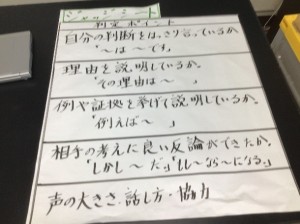 ジャッジメント
判定ポイント
自分の判断をはっきり言っているか
「～は～です」
理由を説明しているか。
「その理由は～　」
例や証拠を挙げて説明しているか。
「例えば～　」
相手の考えに良い反論ができたか。
「しかし～だ」「もし～なら～になる」
声の大きさ・話し方・協力